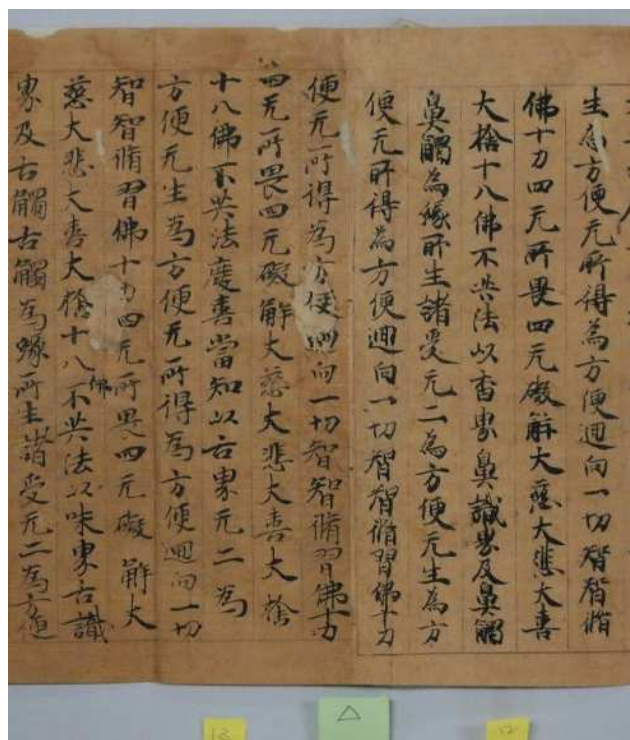 生為方便无所得為方便迴向一切智智脩
佛十力四无所畏四无礙解大慈大悲大喜
大捨十八佛不共法以香界鼻識界及鼻觸
鼻觸為緣所生諸受无二為方便无生為方
便无所得為方便迴向一切智智脩習佛十力
便无所得為方便迴向一切智智脩習佛十力
四无所畏四无礙解大慈大悲大喜大捨
十八佛不共法慶喜當知以舌界无二為
方便无生為方便无所得為方便迴向一切
智智脩習佛十力四无所畏四无礙解大
慈大悲大喜大捨十八佛不共法以味界舌識
界及舌觸舌觸為緣所生諸受无二為方便
13
△
12